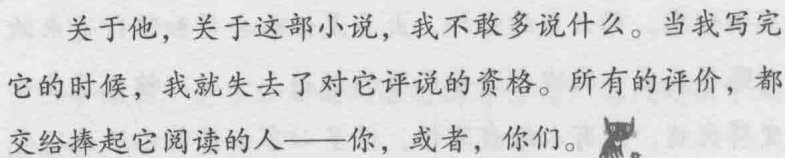 关于他，关于这部小说，我不敢多说什么。当我写完
它的时候，我就失去了对它评说的资格。所有的评价，都
交给捧起它阅读的人——你，或者，你们。